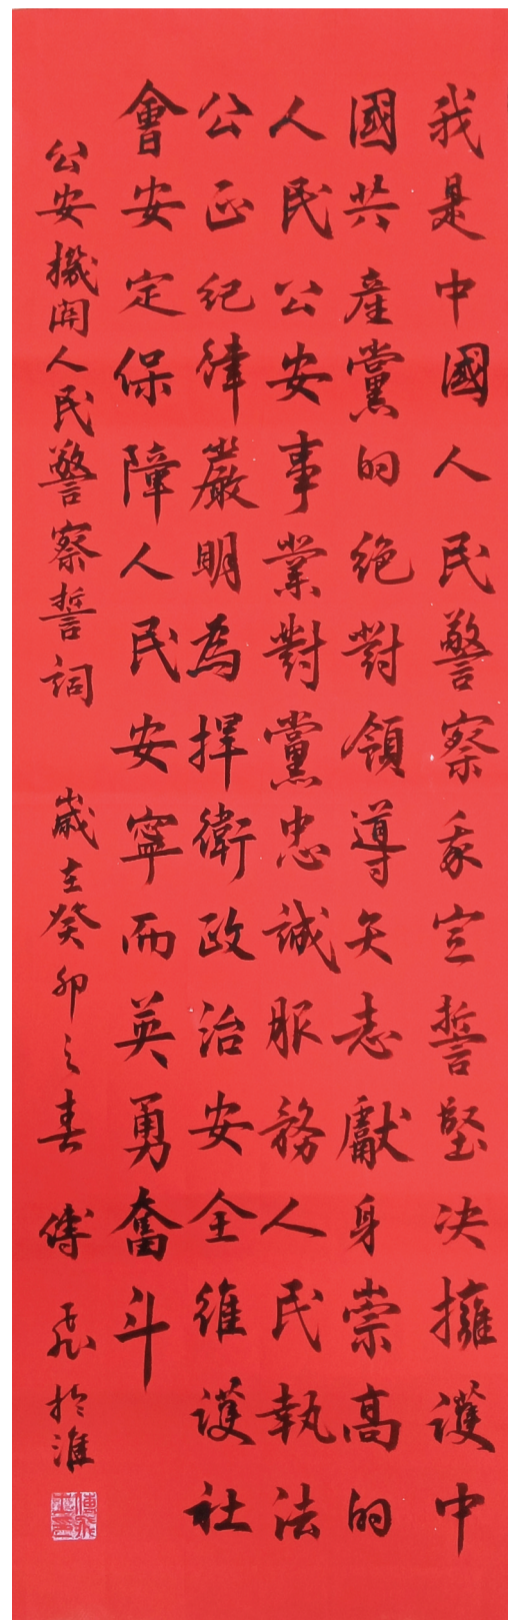 我是中國人民警察我宣誓堅决擁護中
國共產黨的絶對領導矢志獻身崇高的
人民公安事業對黨忠誠服務人民執法
公正紀律嚴明為捍衛政治安全維護社
會安定保障人民安寧而英勇奮斗
公安機関人民警察誓詞 歲在癸卯之春 傅飛於淮